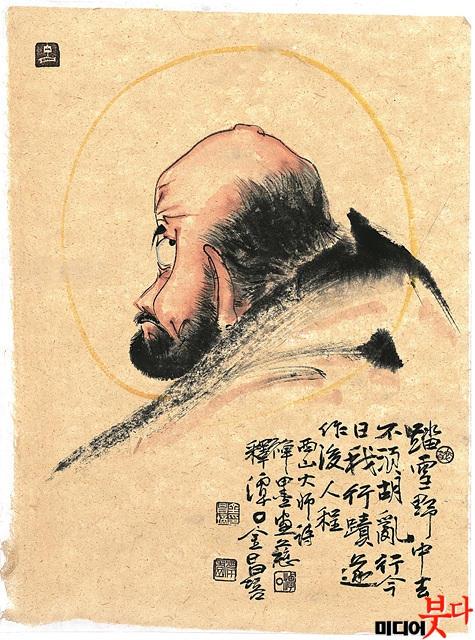 踏雪野中去
不須胡亂行今
日我行蹟遂
作後人程
西山大師詩
禪墨畵
釋潭 金昌培
미디어붓다